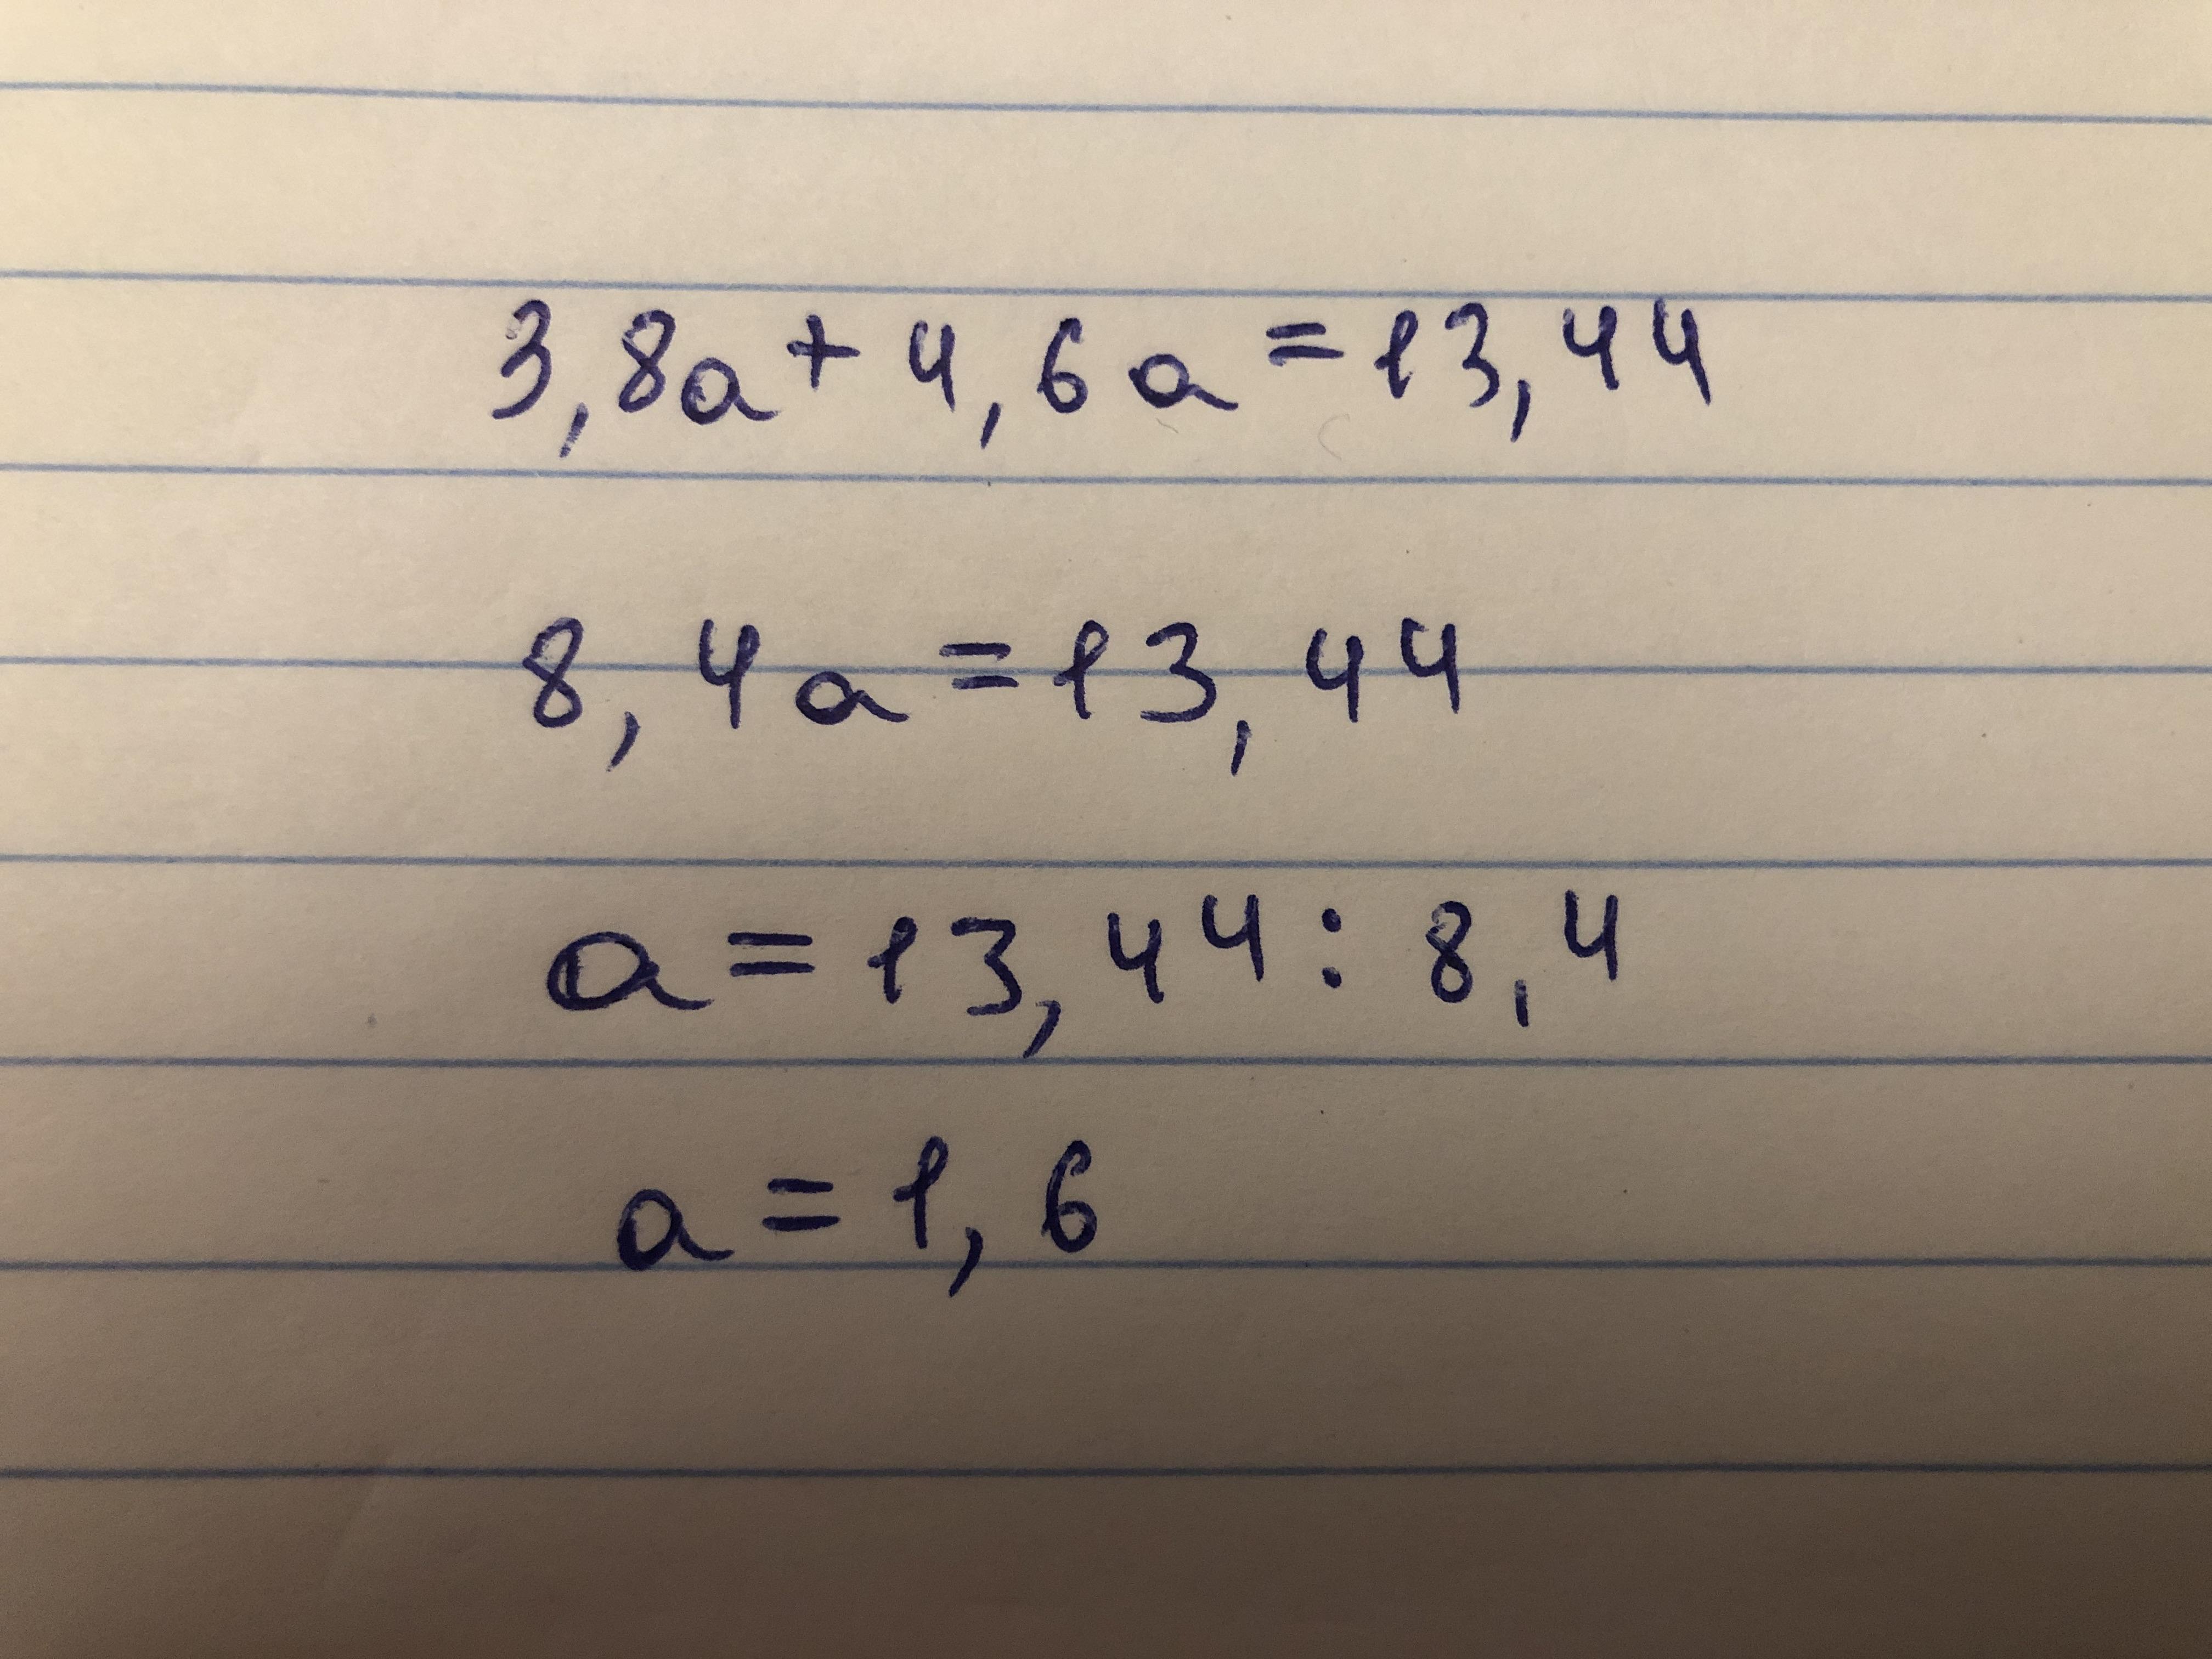 3,8a+4,6a=13,44
8,4a=13,44
a=13,44:8,4
a=1,6